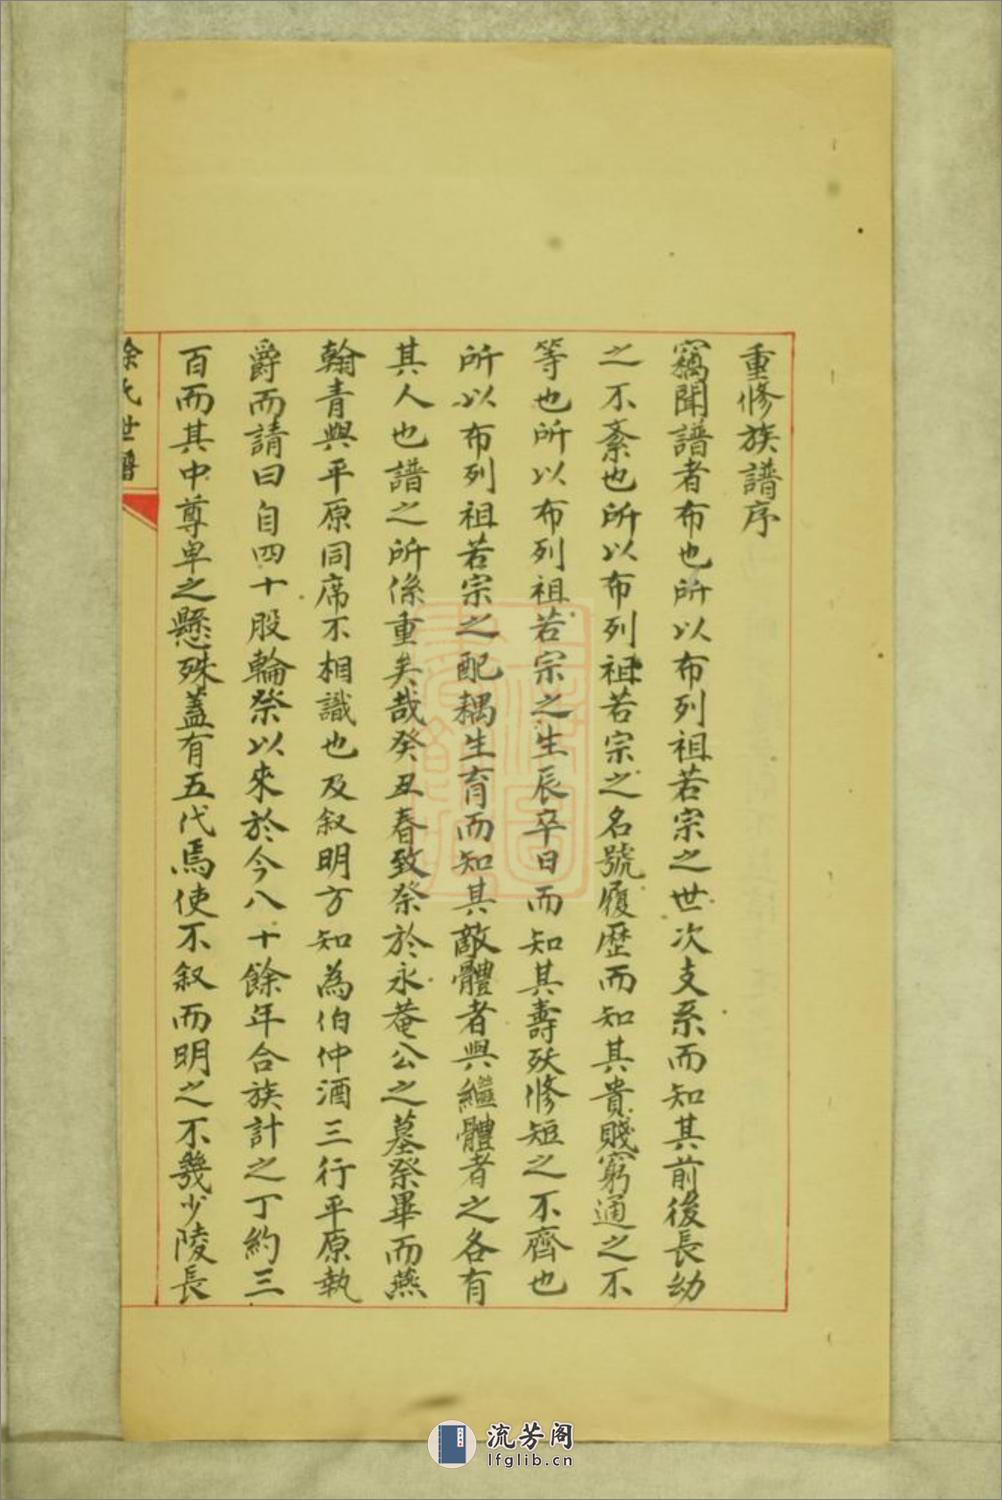 重修族譜序
竊聞譜者布也所以布列祖若宗之世次支系而知其前後長幼
之不紊也所以布列祖若宗之名號履歷而知其貴賤窮通之不
等也所以布列祖若宗之生辰卒日而知其壽殀修短之不齊也
所以布列祖若宗之配耦生育而知其敵體者與繼體者之各有
其人也譜之所係重矣哉癸丑春致祭於永菴公之墓祭畢而燕
翰青與平原同席不相識也及叙明方知為伯仲酒三行平原執
爵而請曰自四十股輪祭以來於今八十餘年合族計之丁約三
百而其中尊卑之懸殊蓋有五代焉使不叙而明之不幾少陵長
氏世譜
流芳阁
lfglib.cn